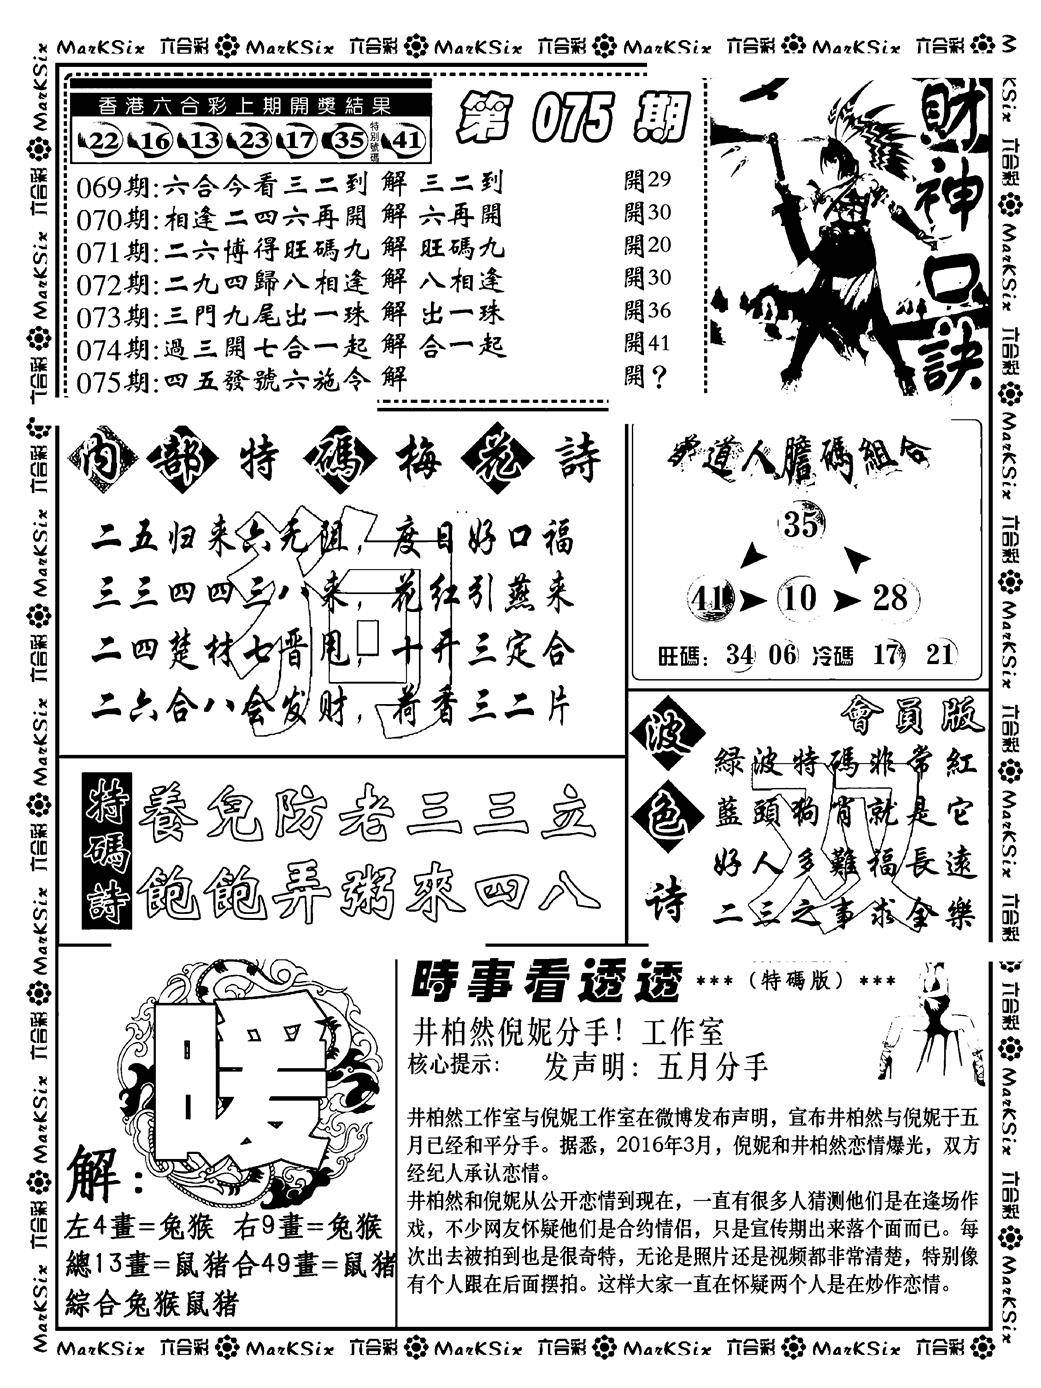 MarKSix 六合彩 MarKSix 六合彩 MarKSix 六合彩 MarKSix 六合彩 MarKSix 六合彩
香港六合彩上期開獎結果
22 16 13 23 17 35 特別號碼 41
第 075 期
財神口訣
069期:六合今看三二到 解 三二到 開29
070期:相逢二四六再開 解 六再開 開30
071期:二六博得旺碼九 解 旺碼九 開20
072期:二九四歸八相逢 解 八相逢 開30
073期:三門九尾出一珠 解 出一珠 開36
074期:過三開七合一起 解 合一起 開41
075期:四五發號六施令 解 開?
內部特碼梅花詩
二五归来六无阻，度日好口福
三三四四三八来，花红引燕来
二四楚材七晋甩，十开三定合
二六合八会发财，荷香三二片
道人膽碼組合
35
41 10 28
旺碼: 34 06 冷碼 17 21
波色诗
會員版
綠波特碼非常紅
藍頭狗肖就是它
好人多難福長遠
二三之事求全樂
特碼詩
養兒防老三三立
飽飽弄粥來四八
解:
左4畫=兔猴 右9畫=兔猴
總13畫=鼠猪合49畫=鼠猪
綜合兔猴鼠猪
時事看透透 *** (特碼版) ***
井柏然倪妮分手！工作室
核心提示: 发声明：五月分手
井柏然工作室与倪妮工作室在微博发布声明，宣布井柏然与倪妮于五
月已经和平分手。据悉，2016年3月，倪妮和井柏然恋情爆光，双方
经纪人承认恋情。
井柏然和倪妮从公开恋情到现在，一直有很多人猜测他们是在逢场作
戏，不少网友怀疑他们是合约情侣，只是宣传期出来落个面而已。每
次出去被拍到也是很奇特，无论是照片还是视频都非常清楚，特别像
有个人跟在后面摆拍。这样大家一直在怀疑两个人是在炒作恋情。
MarKSix 六合彩 MarKSix 六合彩 MarKSix 六合彩 MarKSix 六合彩 MarKSix 六合彩